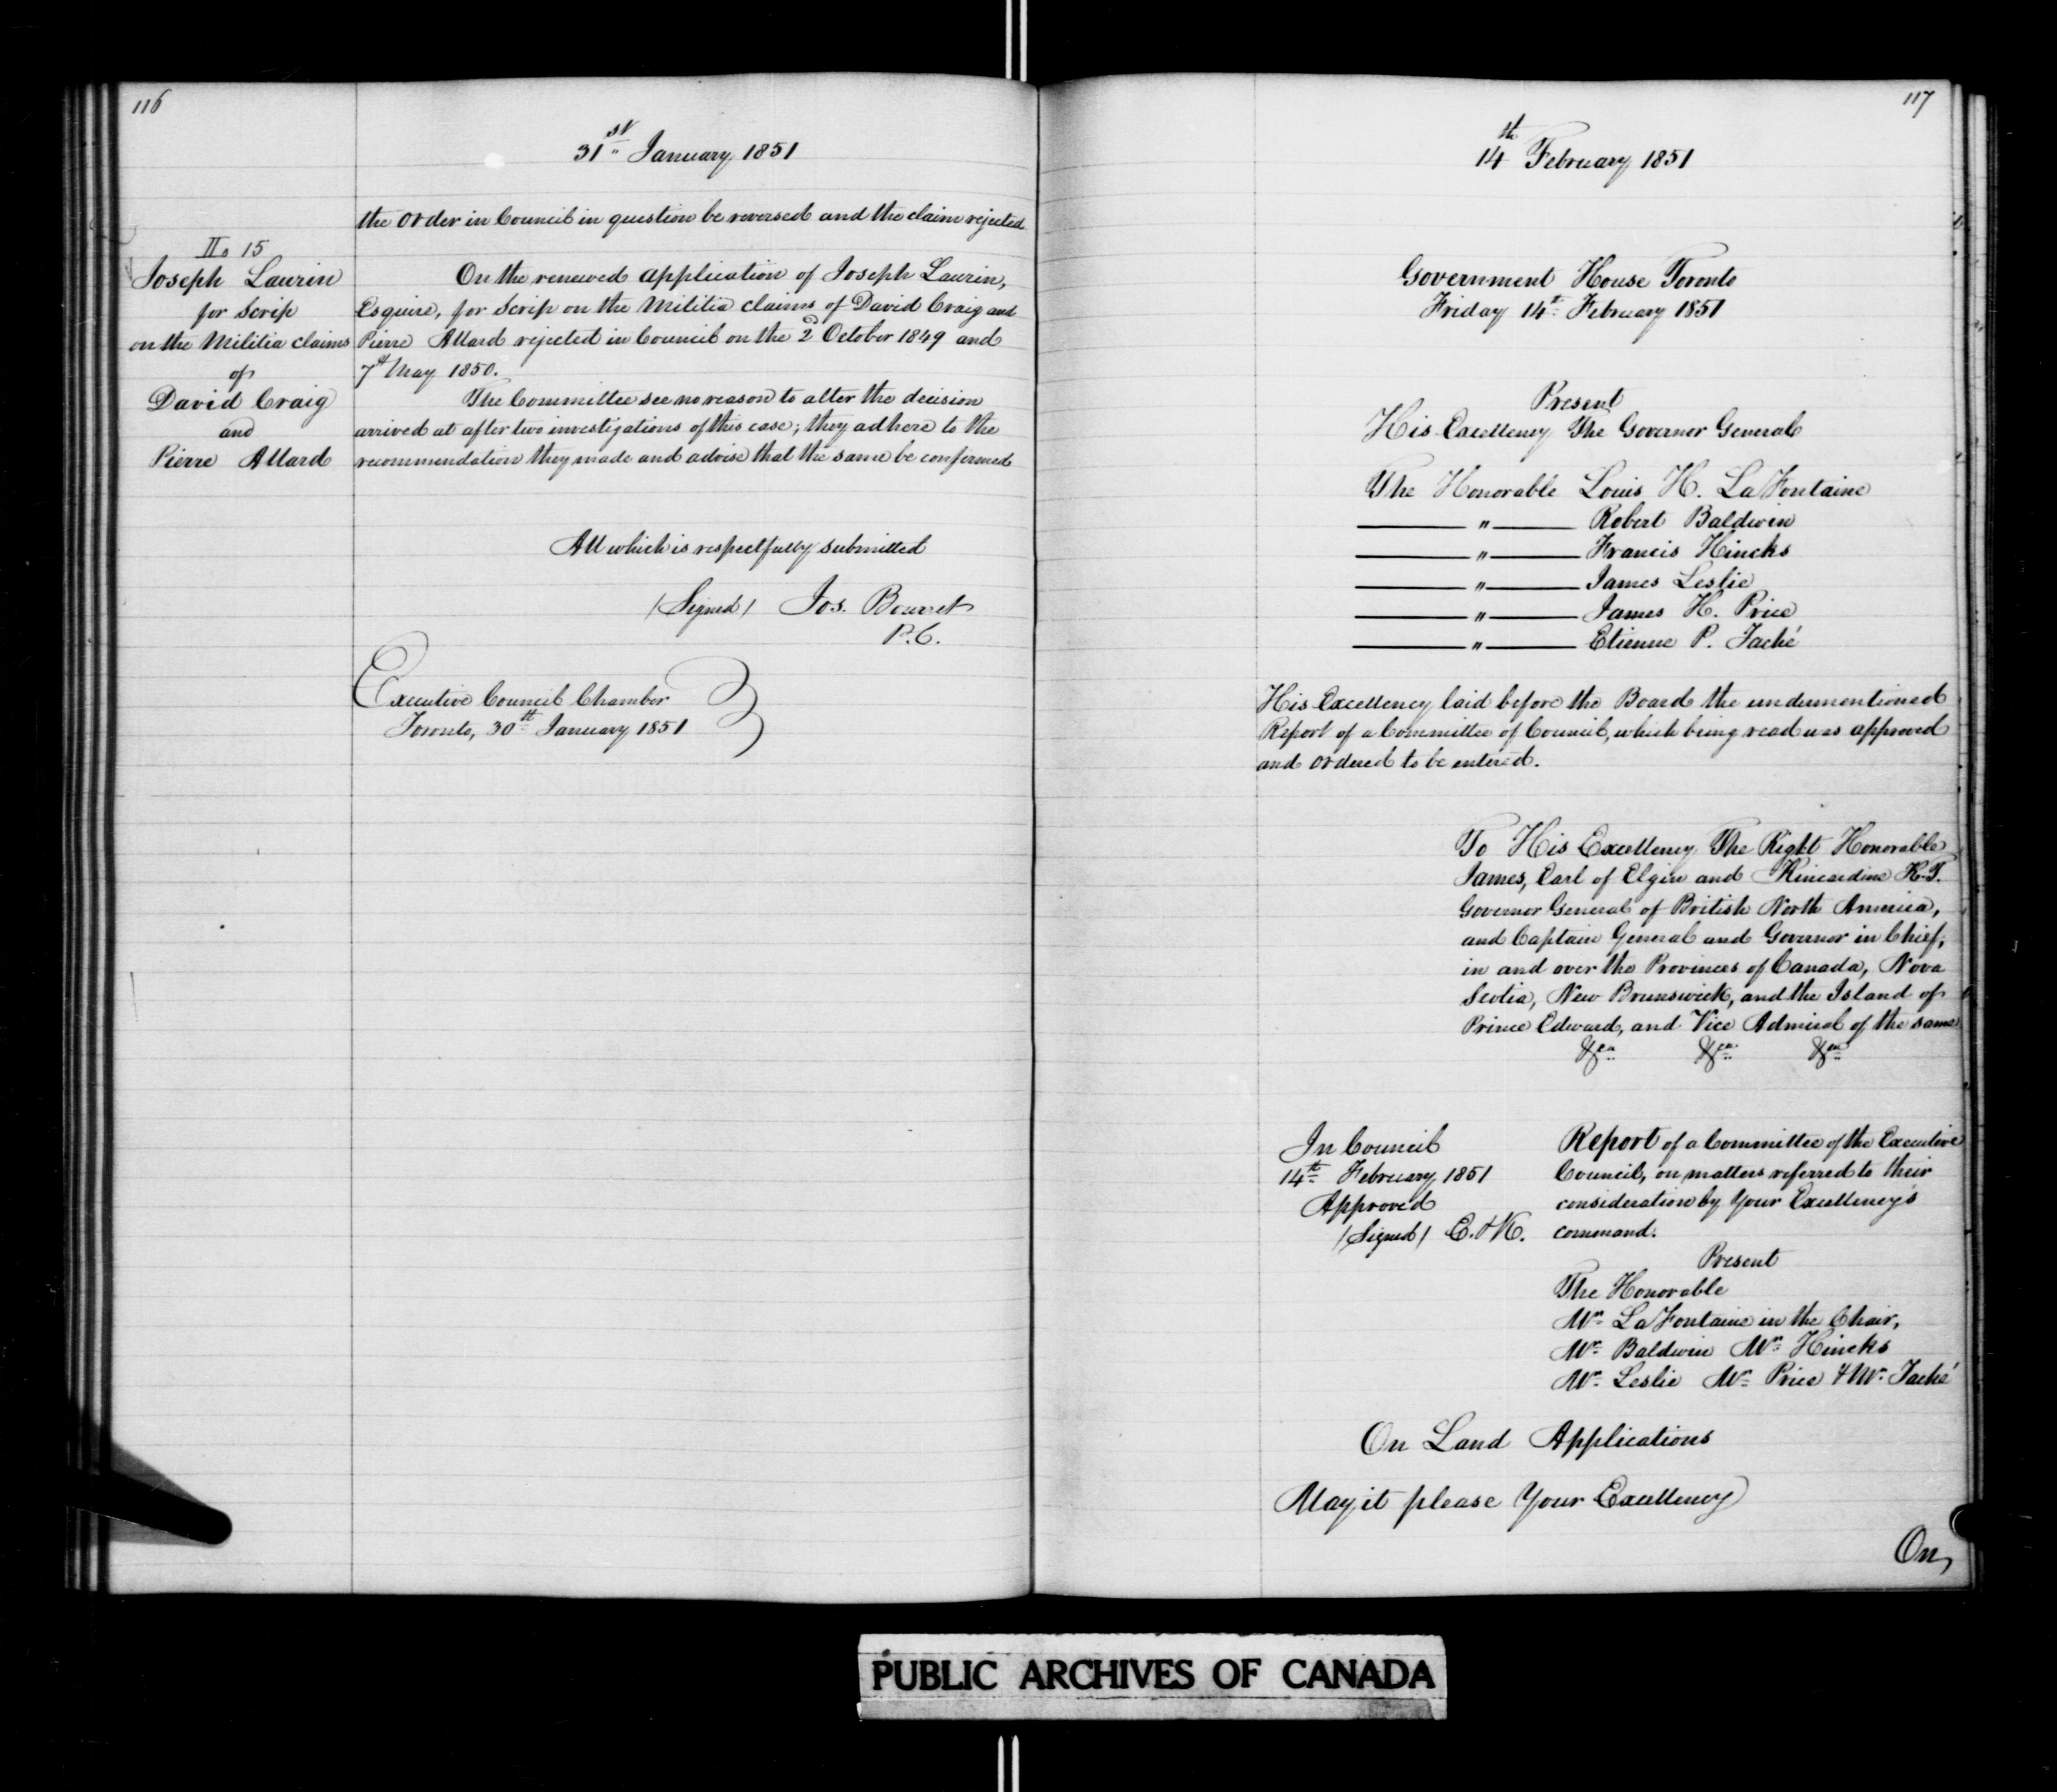 116
31st January 1851
the Order in Council in question be reversed and the claim rejected
No 15
Joseph Laurin
for Scrip
on the Militia claims
of
David Craig
and
Pierre Allard
On the renewed application of Joseph Laurin,
Esquire, for Scrip on the Militia claims of David Craig and
Pierre Allard rejected in Council on the 2d October 1849 and
7th May 1850.
The Committee see no reason to alter the decision
arrived at after two investigations of this case; they adhere to the
recommendation they made and advise that the same be confirmed
All which is respectfully submitted
(Signed) Jos. Bourret
P.C.
Executive Council Chamber
Toronto, 30th January 1851
117
14th February 1851
Government House Toronto
Friday 14th February 1851
Present
His Excellency The Governor General
The Honorable Louis H. LaFontaine
" Robert Baldwin
" Francis Hincks
" James Leslie
" James H. Price
" Etienne P. Taché
His Excellency laid before the Board the undermentioned
Report of a Committee of Council, which being read was approved
and ordered to be entered.
To His Excellency The Right Honorable
James, Earl of Elgin and Kincardine K.T.
Governor General of British North America,
and Captain General and Governor in Chief,
in and over the Provinces of Canada, Nova
Scotia, New Brunswick, and the Island of
Prince Edward, and Vice Admiral of the same
&ca &ca &ca
In Council
14th February 1851
Approved
(Signed) E. & K.
Report of a Committee of the Executive
Council, on matters referred to their
consideration by Your Excellency's
command.
Present
The Honorable
Mr. LaFontaine in the Chair,
Mr. Baldwin Mr. Hincks
Mr. Leslie Mr. Price & Mr. Taché
On Land Applications
May it please Your Excellency
On
PUBLIC ARCHIVES OF CANADA